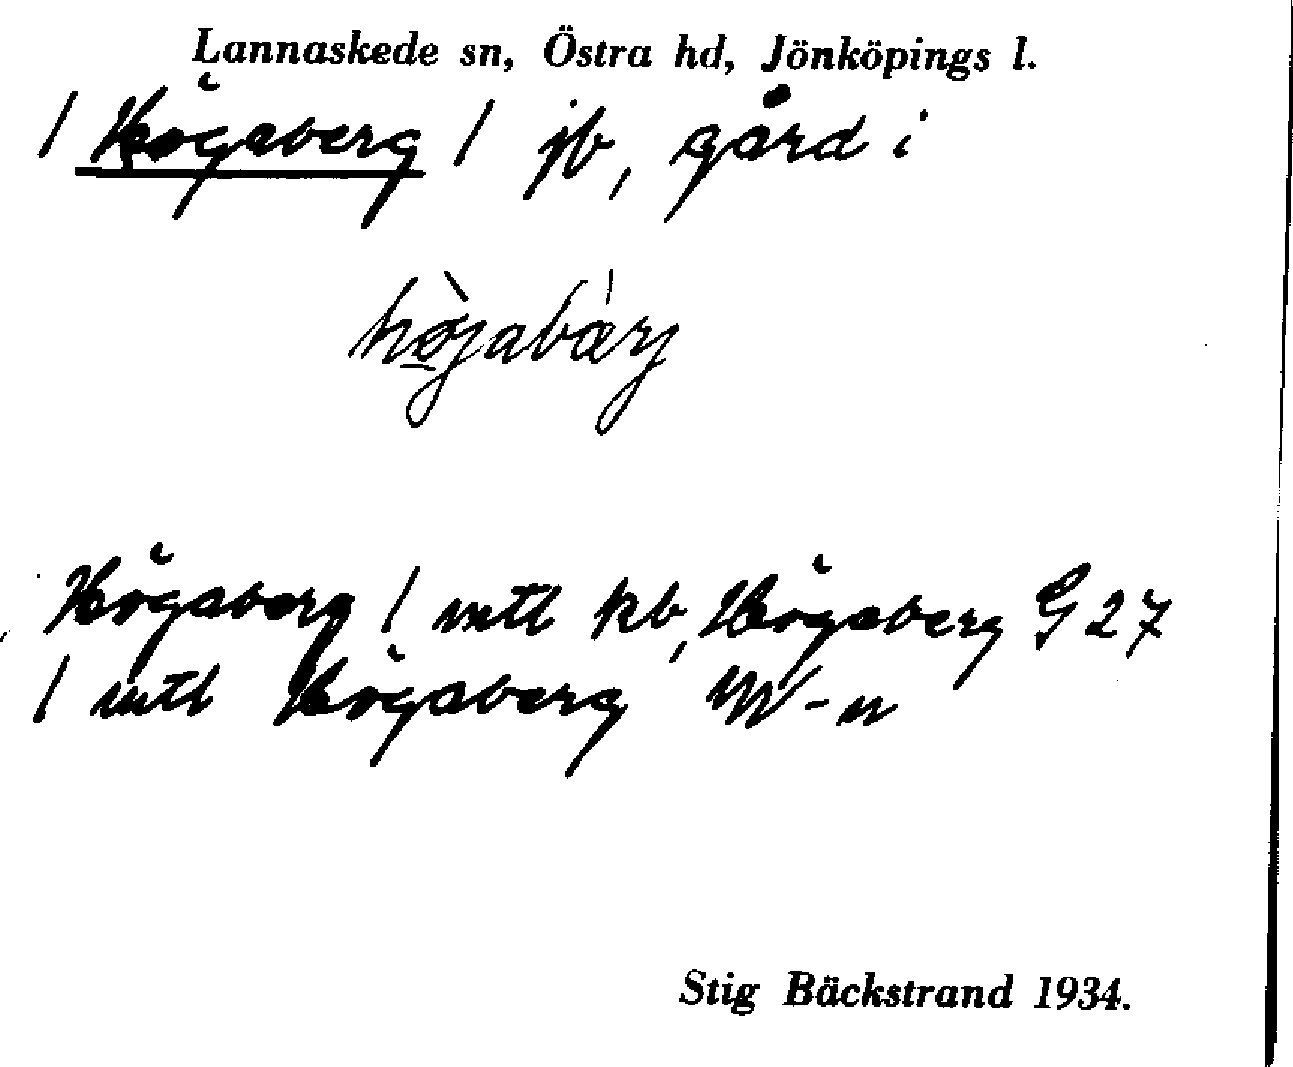 Lannaskede sn, Östra hd, Jönköpings l.
/ Högaberg / jb, gård i
hø̀jabárj
Högaberg / mtl kb, Högaberg G 27
/ mtl Högaberg W-n
Stig Bäckstrand 1934.